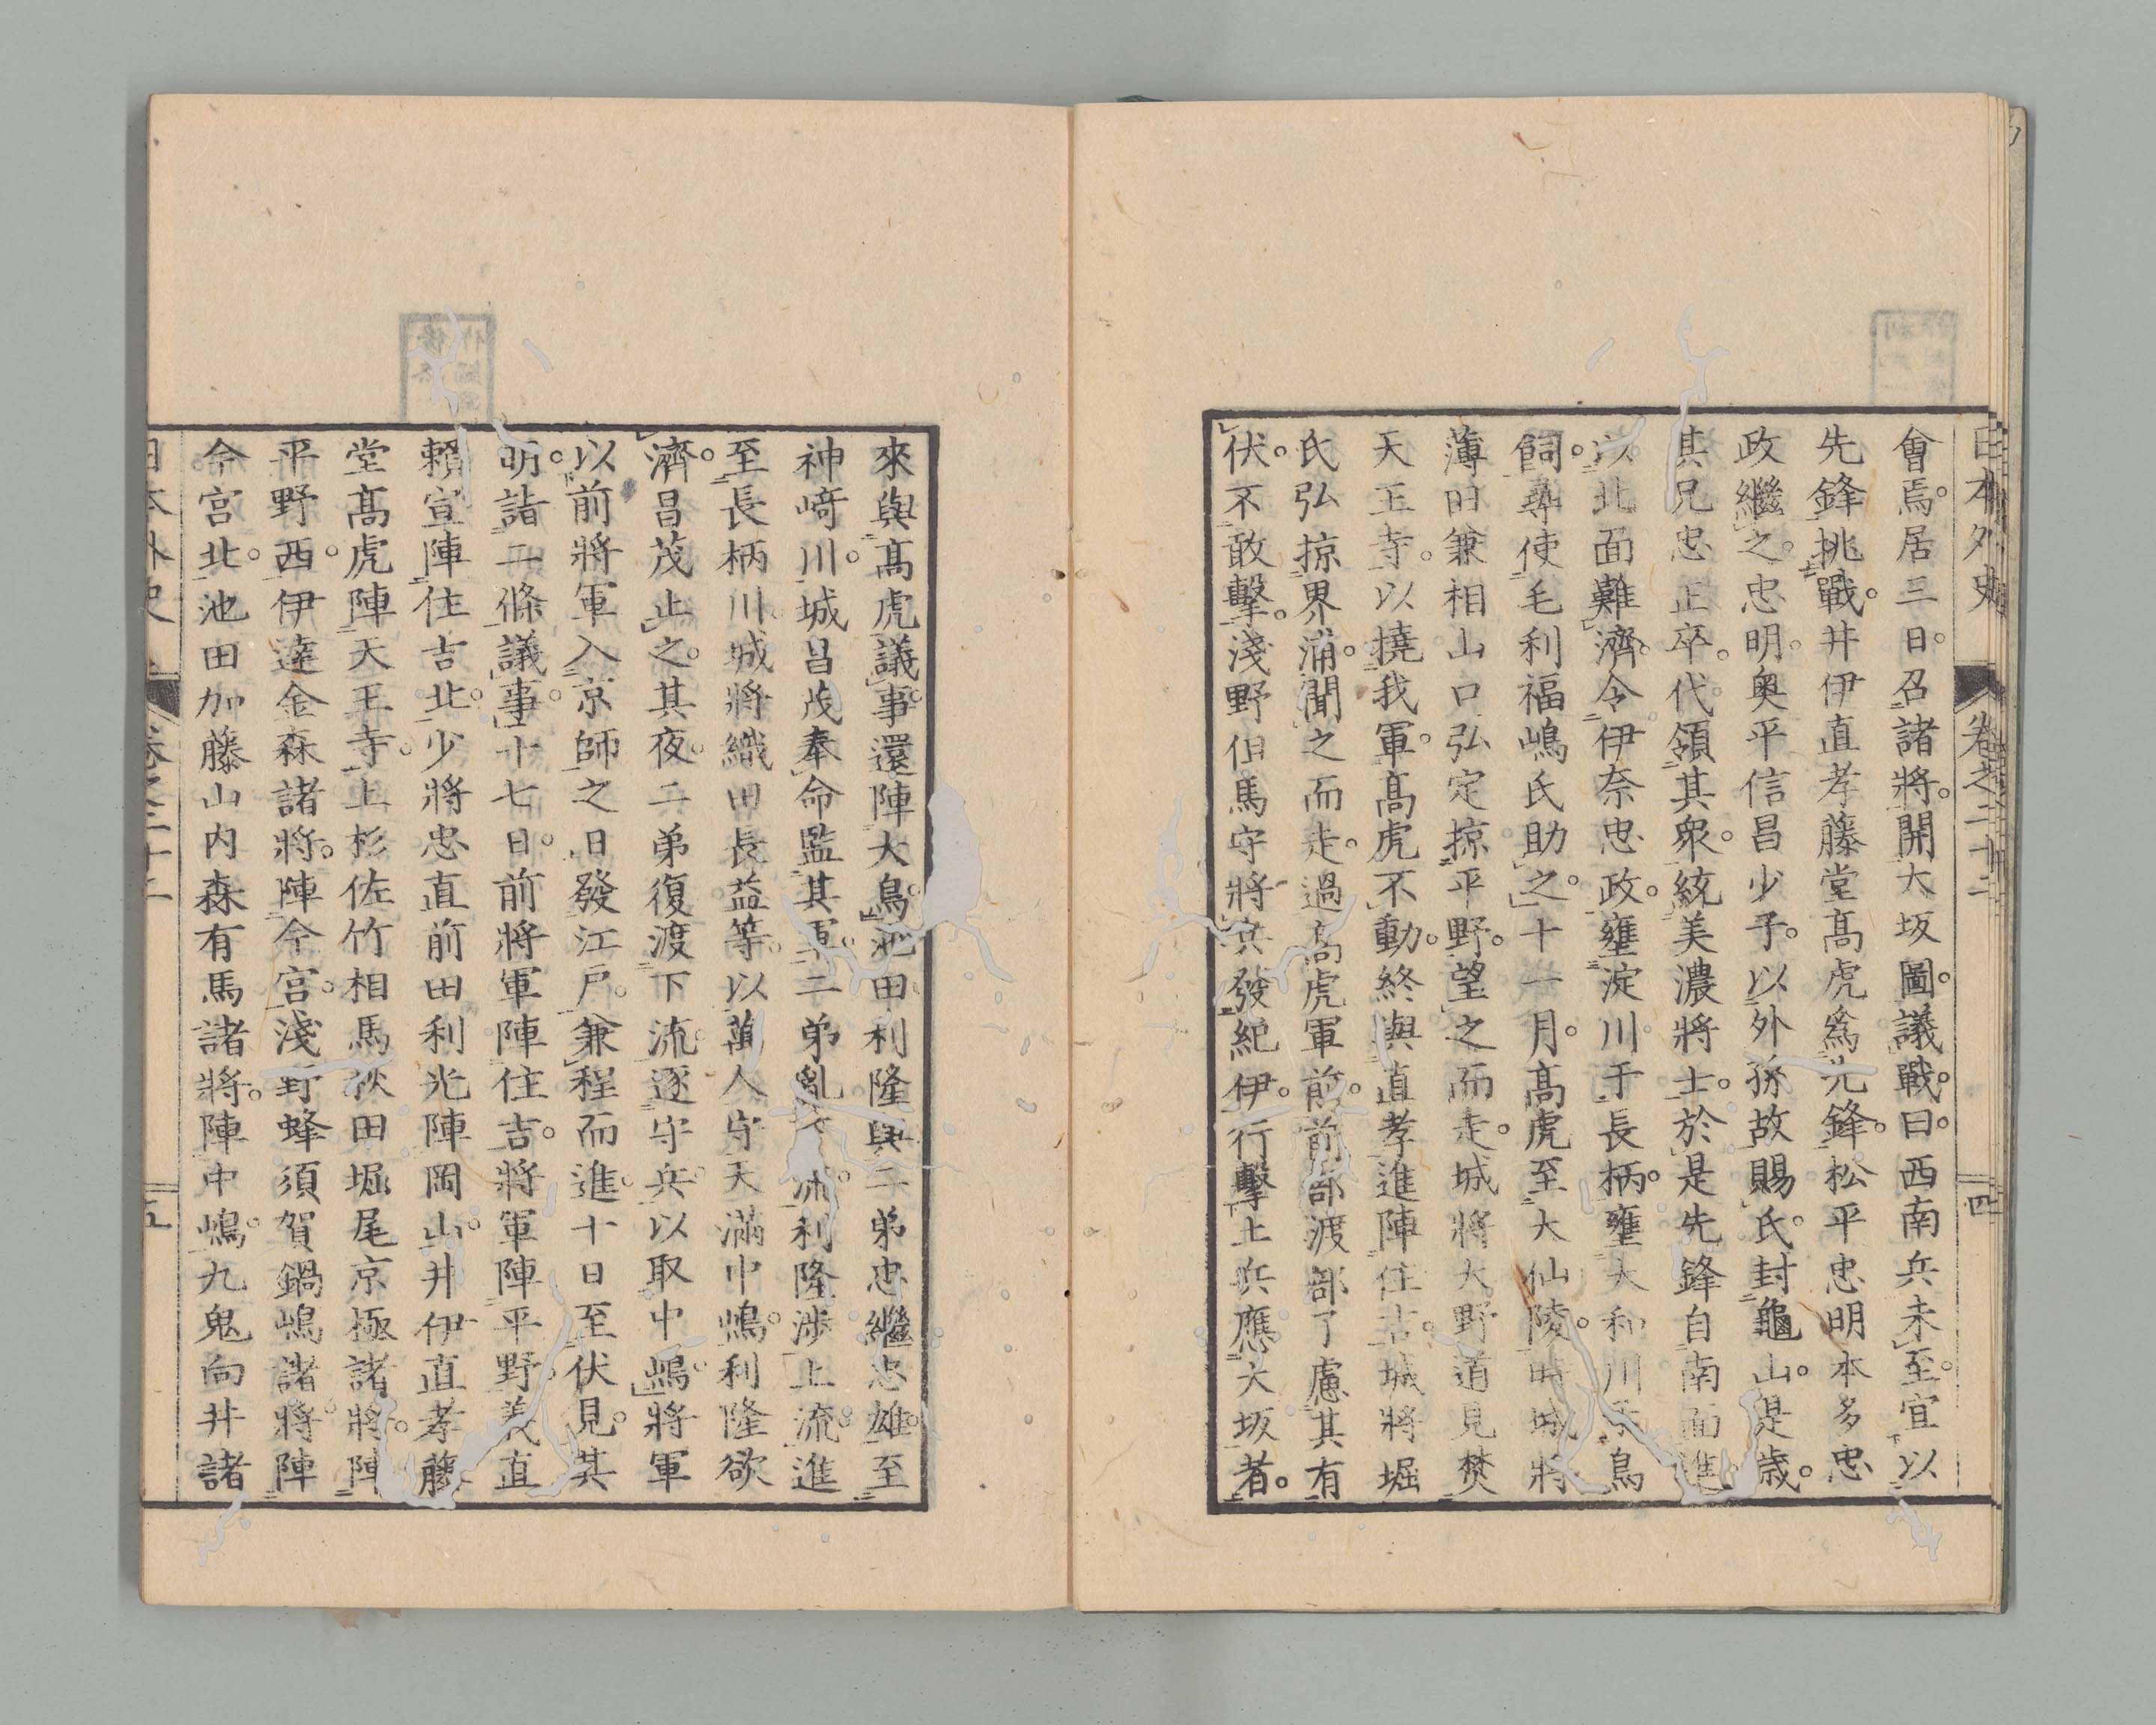 日本外史 卷之二十二 四
會焉。居三日。召諸將。開大坂圖。議戰。曰。西南兵未至。宜以
先鋒挑戰。井伊直孝藤堂髙虎爲先鋒。松平忠明本多忠
政繼之。忠明。奥平信昌少子。以外孫故賜氏。封龜山。是歳。
其兄忠正卒。代領其衆。統美濃將士。於是先鋒自南面進
以北面難濟。令伊奈忠政。壅淀川于長柄。壅大和川于鳥
飼。尋使毛利福嶋氏助之。十一月。髙虎至大仙陵。時城將
薄田兼相山口弘定掠平野。望之而走。城將大野道見焚
天王寺。以撓我軍。髙虎不動。終與直孝進陣住吉。城將堀
氏弘掠界浦。聞之而走。過髙虎軍前。前部渡部了慮其有
伏。不敢擊。淺野但馬守將兵發紀伊。行擊土兵應大坂者。
來與髙虎議事。還陣大鳥。池田利隆與二弟忠繼忠雄。至
神﨑川。城昌茂奉命監其軍。二弟亂流。利隆渉上流。進
至長柄川。城將織田長益等。以萬人守天滿中嶋。利隆欲
濟。昌茂止之。其夜。二弟復渡下流。逐守兵。以取中嶋。將軍
以前將軍入京師之日發江戸。兼程而進。十日至伏見。其
明。詣二條議事。十七日。前將軍陣住吉。將軍陣平野。義直
賴宣陣住吉北。少將忠直前田利光陣岡山。井伊直孝藤
堂髙虎陣天王寺。上杉佐竹相馬秋田堀尾京極諸將。陣
平野西。伊達金森諸將。陣今宮。淺野蜂須賀鍋嶋諸將陣
今宮北。池田加藤山内森有馬諸將。陣中嶋。九鬼向井諸
日本外史 卷之二十二 五